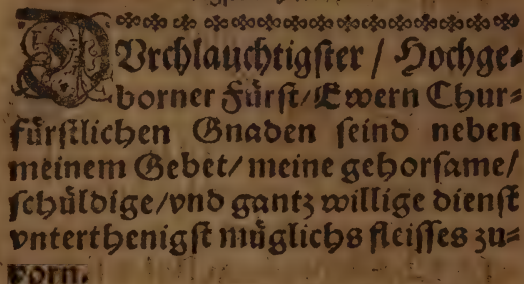 DVrchlauchtigster / Hochge⸗
borner Fürst / Ewern Chur⸗
fürstlichen Gnaden seind neben
meinem Gebet / meine gehorsame /
schüldige / vnd gantz willige dienst
vnterthenigst müglichs fleisses zu⸗
vorn.